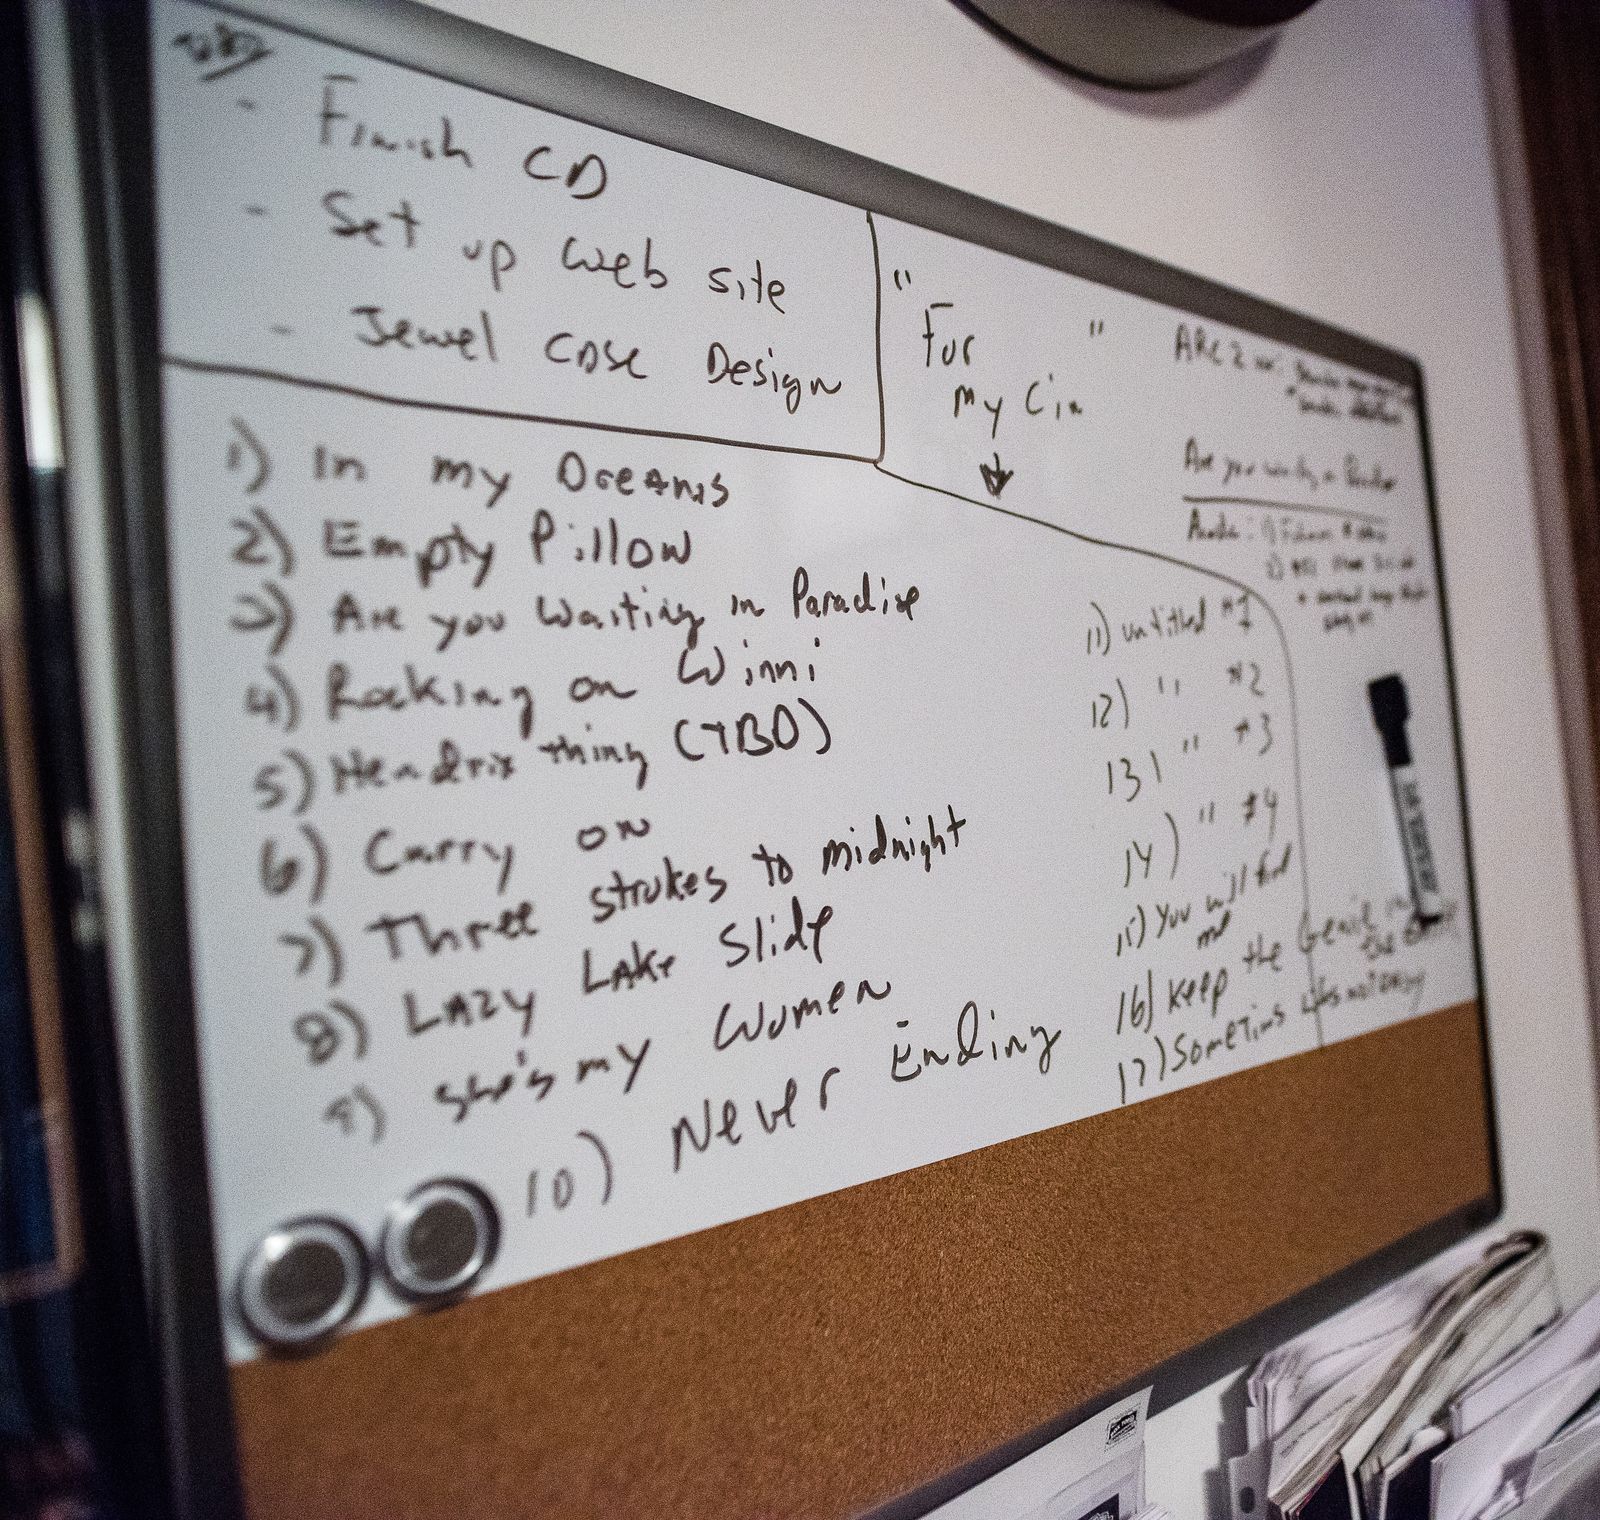 - Finish CD
- Set up web site
- Jewel CASE Design
"For
my Cin"
1) In my Dreams
2) Empty Pillow
3) Are you waiting in Paradise
4) Rocking on Winni
5) Hendrix thing (TBD)
6) Carry on
7) Three strokes to midnight
8) LAZY LAKe Slide
9) She's my Women
10) Never Ending
11) untitled #1
12) " #2
13) " #3
14) " #4
15) You will find
me
16) Keep the Genie in
the Bottle
17) Sometims Lifes not easy
ARC 2
Are you waiting in Paradise